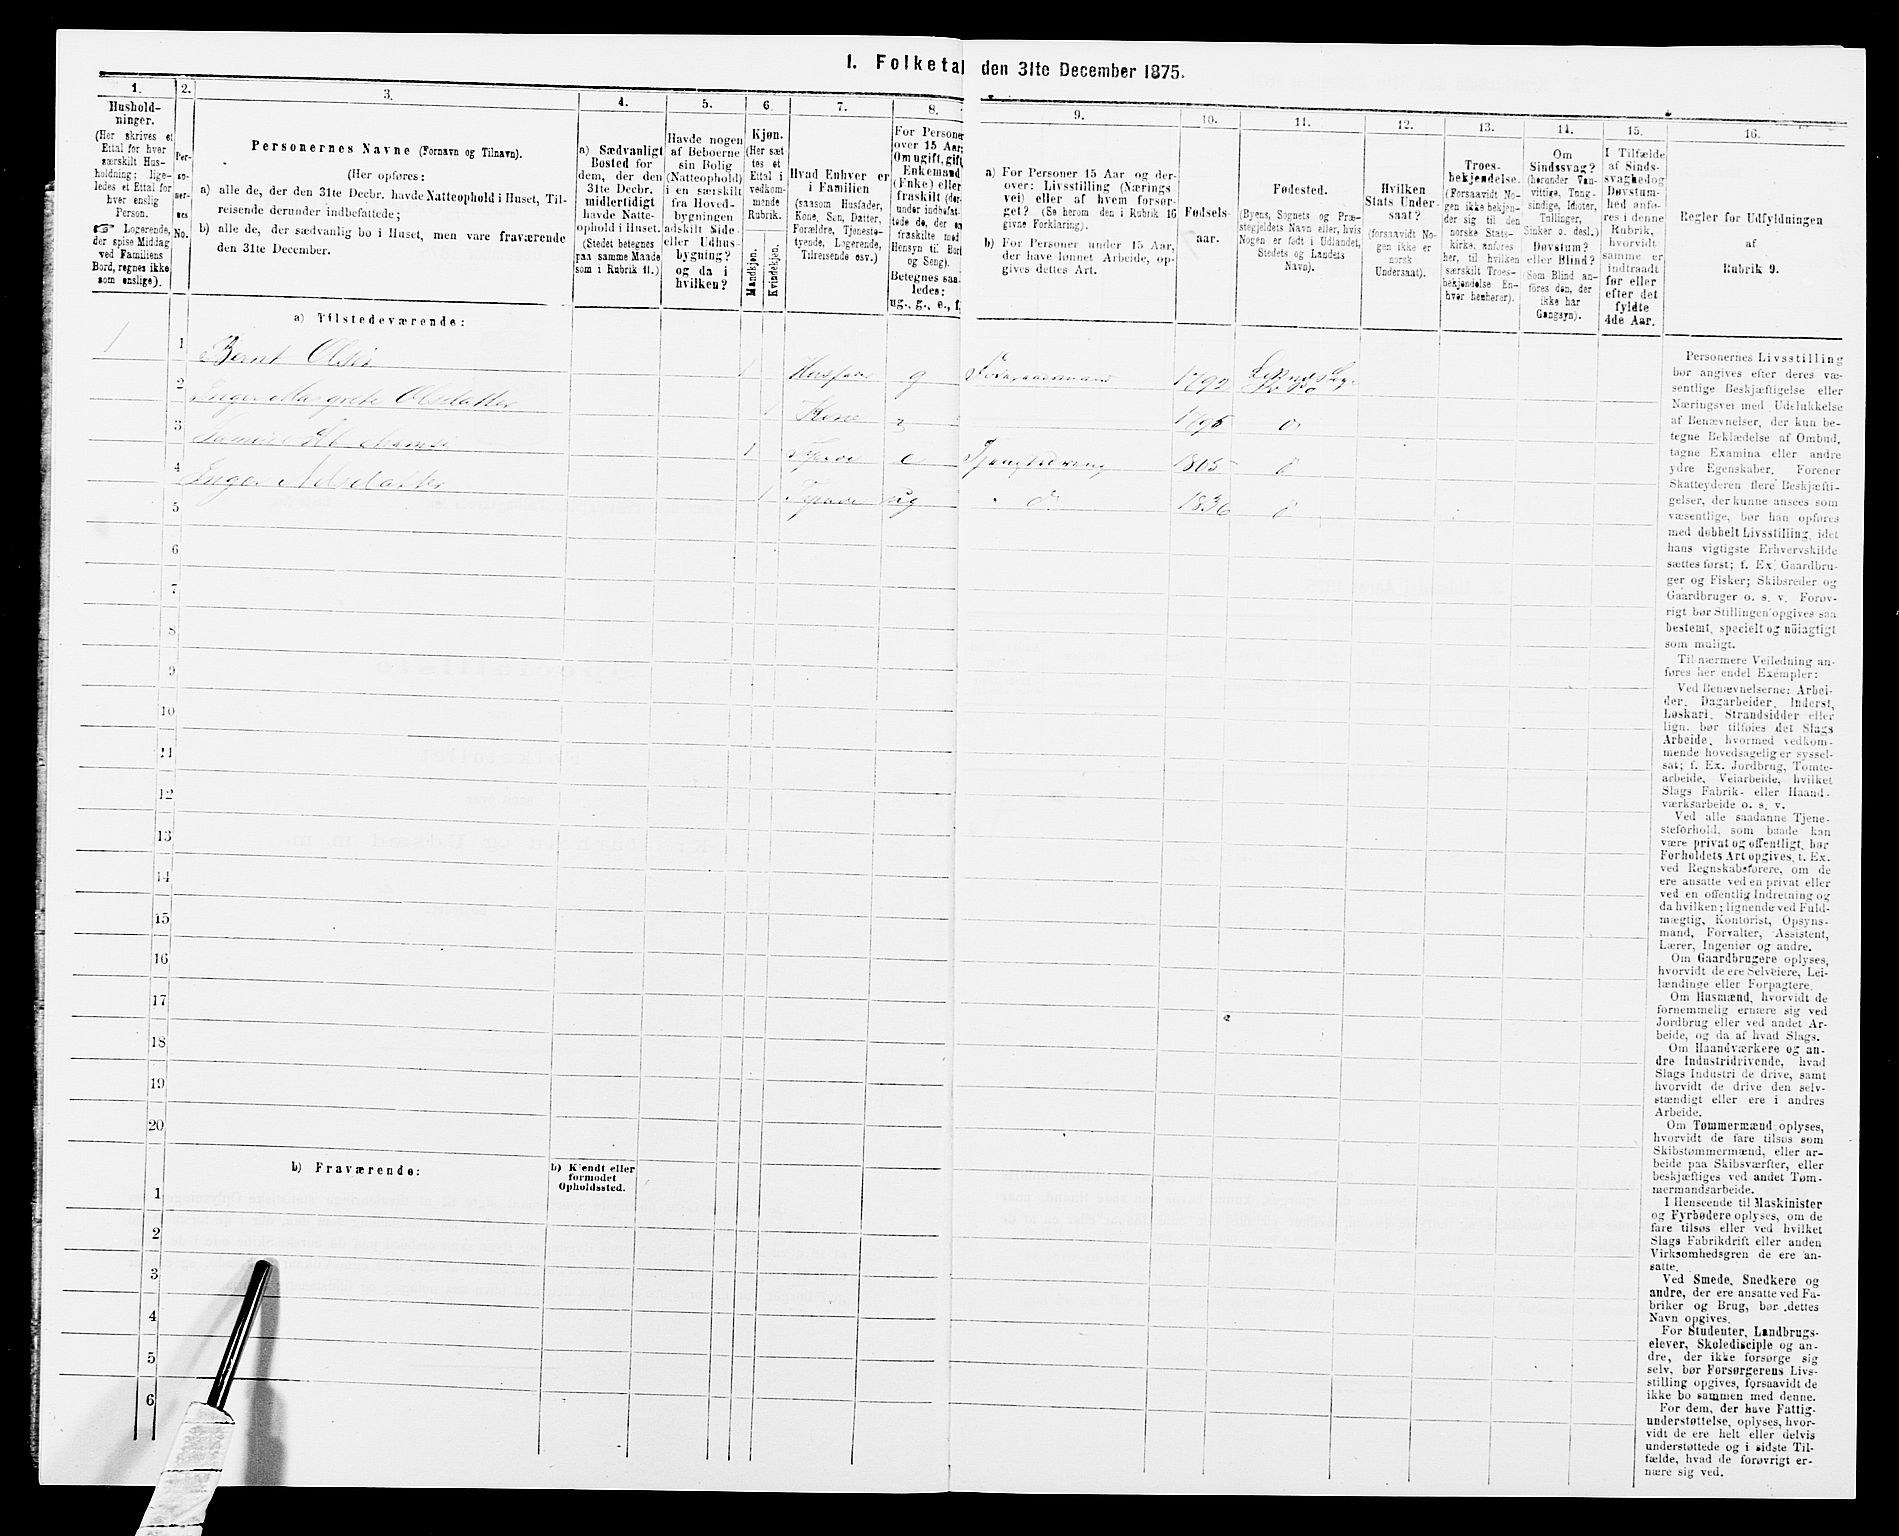 I. Folketal den 31te December 1875.
1.
Hushold-
ninger.
(Her skrives et
Ettal for hver
særskilt Hus-
holdning; lige-
ledes et Ettal for
hver enslig
Person.
☞ Logerende,
der spise Middag
ved Familiens
Bord, regnes ikke
som enslige).
2.
Per-
so-
ner-
nes
No.
3.
Personernes Navne (Fornavn og Tilnavn).
(Her opføres:
a) alle de, der den 31te Decbr. havde Natteophold i Huset, Til-
reisende derunder indbefattede;
b) alle de, der sædvanlig bo i Huset, men vare fraværende
den 31te December.
4.
a) Sædvanligt
Bosted for
dem, der den
31te Decbr.
midlertidigt
havde Natte-
ophold i Huset.
(Stedet betegnes
paa samme Maade
som i Rubrik 11.)
5.
Havde nogen
af Beboerne
sin Bolig
(Natteophold)
i en særskilt
fra Hoved-
bygningen
adskilt Side-
eller Udhus-
bygning?
og da i
hvilken?
6.
Kjøn.
(Her sæt
tes et
Ettal i
vedkom-
mende
Rubrik.
Mandkjøn.
Kvindekjøn.
7.
Hvad Enhver er
i Familien
(saasom Husfader,
Kone, Søn, Datter,
Forældre, Tjeneste-
tyende, Logerende,
Tilreisende osv.)
8.
For Personer
over 15 Aar:
Om ugift, gift,
Enkemand
(Enke) eller
fraskilt (der-
under indbefat-
tede de, der en
fraskilte med
Hensyn til Bord
og Seng).
Betegnes saa-
ledes:
ug., g., e., f.
9.
a) For Personer 15 Aar og der-
over: Livsstilling (Nærings
vei) eller af hvem forsør-
get? (Se herom den i Rubrik 16
givne Forklaring).
b) For Personer under 15 Aar,
der have lønnet Arbeide, op-
gives dettes Art.
10.
Fødsels-
aar.
11.
Fødested.
(Byens, Sognets og Præ-
stegjeldets Navn eller, hvis
Nogen er født i Udlandet,
Stedets og Landets
Navn).
12.
Hvilken
Stats Under-
saat?
(forsaavidt No-
gen ikke er
norsk
Undersaat).
13.
Troes-
bekjendelse.
(Forsaavidt No-
gen ikke bekjen-
der sig til den
norske Stats-
kirke, anføres
her, til hvilken
særskilt Troes-
bekjendelse En-
hver henhører).
14.
Om
Sindssvag?
(herunder Van-
vittige, Tung-
sindige, Idioter,
Tullinger,
Sinker o. desl.)
Døvstum?
eller Blind?
(Som Blind an-
føres den, der
ikke har
Gangsyn).
15.
I Tilfælde
af Sinds-
svaghed og
Døvstum-
hed anfø-
res i denne
Rubrik,
hvorvidt
samme er
indtraadt
før eller
efter det
fyldte
4de Aar.
16.
Regler for Udfyldningen
af
Rubrik 9.
a) Tilstedeværende:
1 1 Bernt Olsen 1 Husfader g 1792
2 Inger Margrete Olsdatter 1 Kone g 1795 do
3 1 e 1805 do
4 Inger Nilsdatter 1 ug do 1836 do
5
6
7
8
9
10
11
12
13
14
15
16
17
18
19
20
b) Fraværende:
b) Kjendt eller
formodet
Opholdssted.
1
2
3
4
5
6
Personernes Livsstilling
bør angives efter deres væ-
sentlige Beskjæftigelse eller
Næringsvei med Udelukkelse
af Benævnelser, der kun be-
tegne Beklædelse af Ombud,
tagne Examina eller andre
ydre Egenskaber. Forener
Skatteyderen flere Beskjæfti-
gelser, der kunne ansees som
væsentlige, bør han opføres
med dobbelt Livsstilling, idet
hans vigtigste Erhvervskilde
sættes først; f. Ex. Gaardbru-
ger og Fisker; Skibsreder og
Gaardbruger o. s. v. Forøv-
rigt bør Stillingen opgives saa
bestemt, specielt og nøiagtigt
som muligt.
Til nærmere Veiledning an-
føres her endel Exempler:
Ved Benævnelserne: Arbei-
der, Dagarbeider, Inderst,
Løskarl, Strandsidder eller
lign. bør tilføies det Slags
Arbeide, hvormed vedkom-
mende hovedsagelig er syssel-
sat; f. Ex. Jordbrug, Tomte-
arbeide, Veiarbeide, hvilket
Slags Fabrik- eller Haand-
værksarbeide o. s. v.
Ved alle saadanne Tjene-
steforhold, som baade kan
være privat og offentligt, bør
Forholdets Art opgives, t. Ex.
ved Regnskabsførere, om de
ere ansatte ved en privat eller
ved en offentlig Indretning og
da hvilken; lignende ved Fuld-
mægtig, Kontorist, Opsyns-
mand, Forvalter, Assistent,
Lærer, Ingeniør og andre.
Om Gaardbrugere oplyses,
hvorvidt de ere Selveiere, Lei-
lændinge eller Forpagtere.
Om Husmænd, hvorvidt de
fornemmelig ernære sig ved
Jordbrug eller ved andet Ar-
beide, og da af hvad Slags.
Om Haandværkere og an-
dre Industridrivende, hvad
Slags Industri de drive, samt
hvorvidt de drive den selv-
stændigt eller ere i andres
Arbeide.
Om Tømmermænd oplyses,
hvorvidt de fare tilsøs som
Skibstømmermænd, eller ar-
beide paa Skibsværfter, eller
beskjæftiges ved andet Tøm-
mermandsarbeide.
I Henseende til Maskinister
og Fyrbødere oplyses, om de
fare tilsøs eller ved hvilket
Slags Fabrikdrift eller anden
Virksomhedsgren de ere an-
satte.
Ved Smede, Snedkere og
andre, der ere ansatte ved Fa-
briker og Brug, bør dettes
Navn opgives.
For Studenter, Landbrugs-
elever, Skoledisciple og an-
dre, der ikke forsørge sig
selv, bør Forsørgerens Livs-
stilling opgives, forsaavidt de
ikke bo sammen med denne.
For dem, der have Fattig-
understøttelse, oplyses, hvor-
vidt de ere helt eller delvis
understøttede og i sidste Til-
fælde, hvad de forøvrigt er-
nære sig ved.